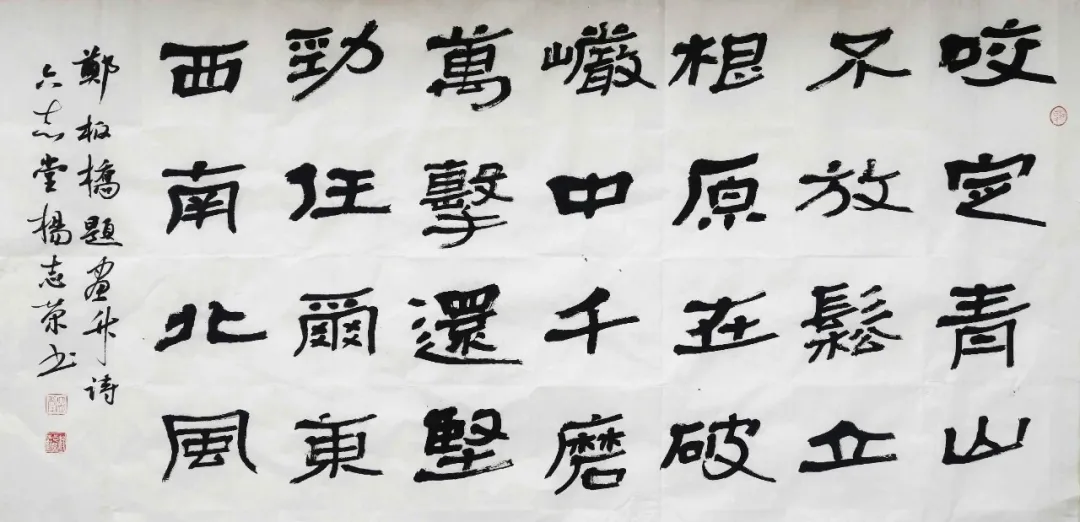 咬定青山
不放鬆立
根原在破
巗中千磨
萬擊還堅
勁任爾東
西南北風
鄭板橋題畫竹詩
六志堂楊志榮书